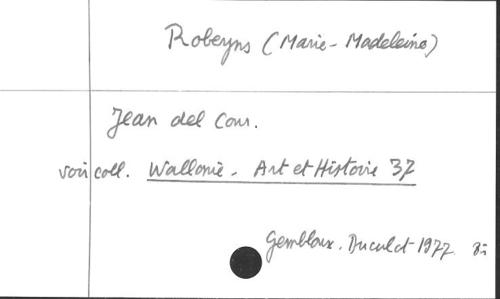 Robeyns (Marie-Madeleine)
Jean del Cour.
voir coll. Wallonie. Art et Histoire 37
Gembloux. Duculot 1977